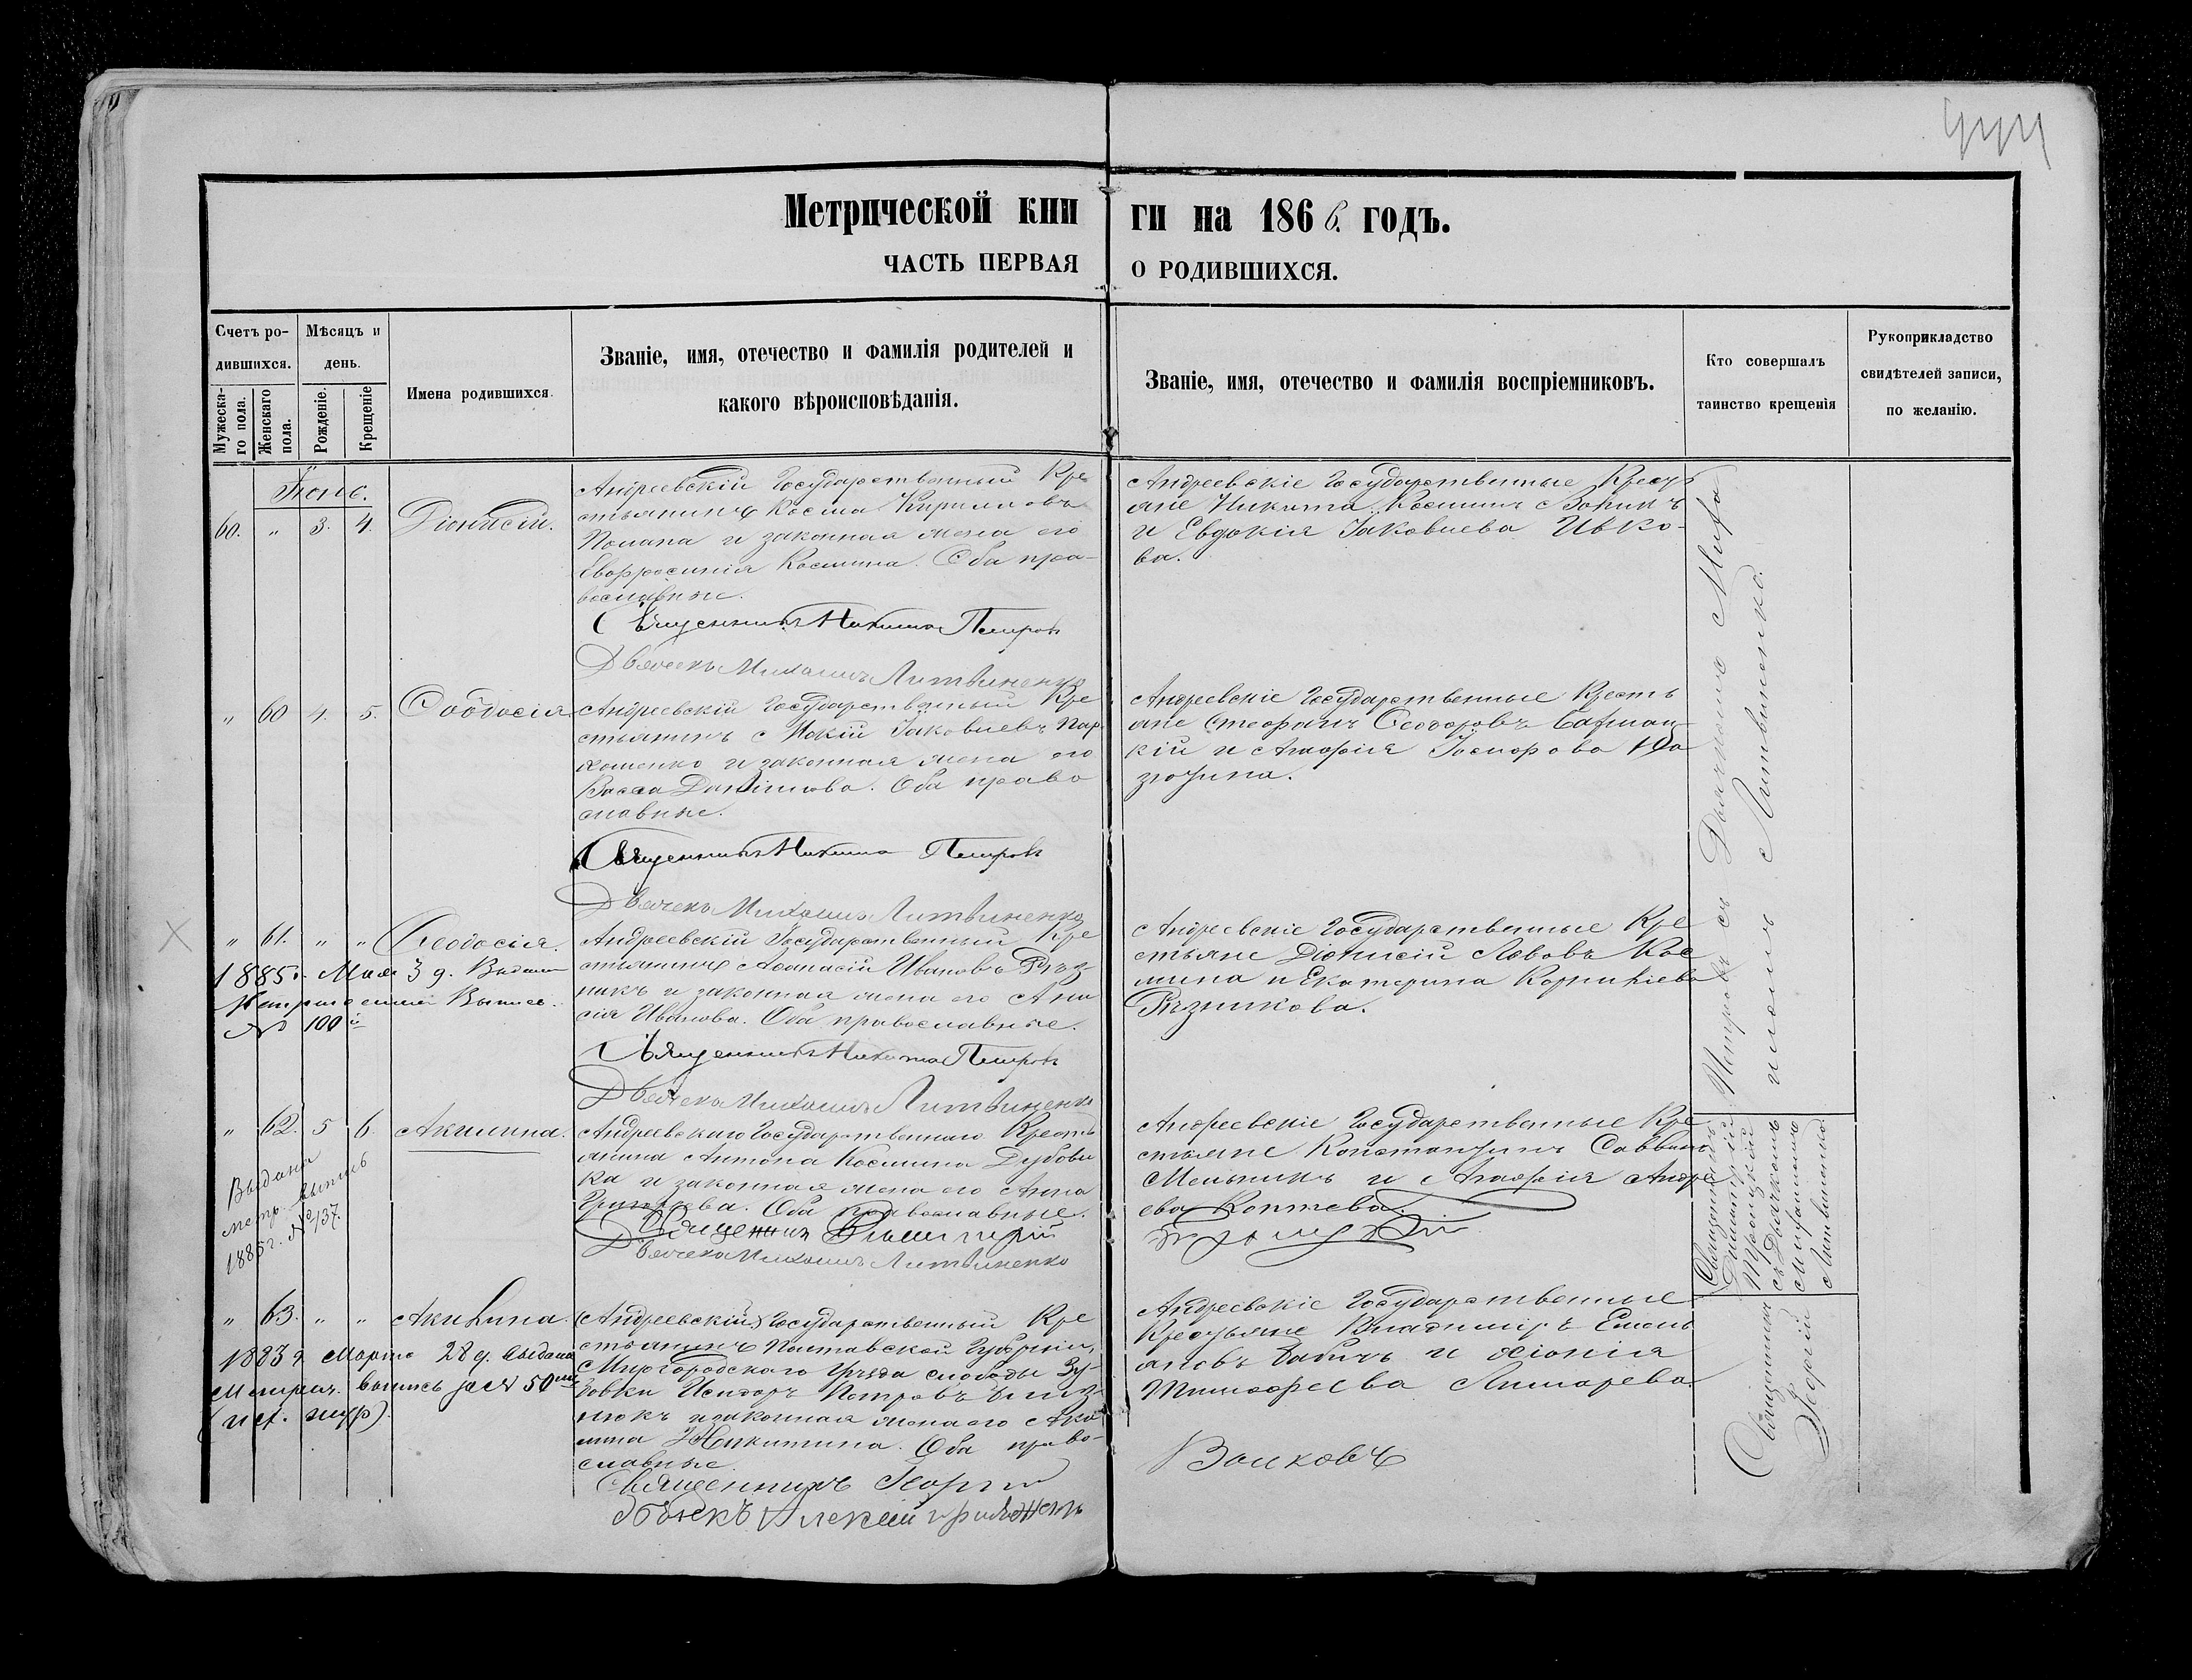 Метрической кни ги на 186 6. годъ.
ЧАСТЬ ПЕРВАЯ О РОДИВШИХСЯ.
Счетъ родившихся.
Мужескаго пола.
Женскаго пола.
Мѣсяцъ и день.
Рожденіе.
Крещеніе
Имена родившихся.
Званіе, имя, отечество и фамилія родителей и
какого вѣроисповѣданія.
Званіе, имя, отечество и фамилія воспріемниковъ.
Кто совершалъ
таинство крещенія
Рукоприкладство
свидѣтелей записи,
по желанію.
Іюнь.
60. " 3. 4. Діонисій.
Андреевскій Государственный Кре
стьянинъ Косма Кирилловъ
и законная жена его
Евфросинія Космина. Оба пра-
вославные.
Священникъ Никита Петровъ
Дьячекъ Михаилъ Литвиненко
Андреевскіе Государственные Крестья
не Никита Косминъ
и Евдокія Іаковлева Ивко-
ва.
" 60 4. 5. Ѳеодосія
Андреевскій Государственный Кре
стьянинъ Мокій Іаковлевъ Пар
хоменко и законная жена его
Васса Даніилова. Оба право
славные.
Священникъ Никита Петровъ
Дьячекъ Михаилъ Литвиненко
Андреевскіе Государственные Кресть
яне Стефанъ Ѳеодоровъ
кій и Агафія
" 61. " " Ѳеодосія.
1885 г. Мая 3 д. Выдана
Метрическая Выпис.
№ 100й
Андреевскій Государственный Кре
стьянинъ Аѳанасій Ивановъ Рѣз
никъ и законная жена его Ани
сія Иванова. Оба православные.
Священникъ Никита Петровъ
Дьячекъ Михаилъ Литвиненко
Андреевскіе Государственные Кре
стьяне Діонисій Львовъ Кос
мина и Екатерина Корниліева
Рѣзникова.
Петровъ съ Дьячкомъ Миха
иломъ Литвиненко.
" 62. 5 6 Акилина.
Выдана
метр. выпись
1886 г. № 137.
Андреевскаго Государственнаго Кресть
янина Антона Космина Дубови
ка и законная жена его Анна
Григорьева. Оба православные.
Священникъ Димитрій
Дьячекъ Михаилъ Литвиненко
Андреевскіе Государственные Кре
стьяне Константинъ Саввинъ
Мельникъ и Агафія Андре
ева Коптева.
Троицкій
Священникъ
Димитрій
Троицкій
съ Дьячкомъ
Михаиломъ
Литвиненко
" 63. " " Акилина.
1883 г. Марта 28 д. выдана
Метрич. выпись за № 50мъ
Андреевскій Государственный Кре
стьянинъ Полтавской Губерніи,
Миргородскаго Уѣзда слободы Зу-
бовки Исидоръ Петровъ
нюкъ и законная жена его Аки
лина Никитина. Оба право-
славные.
Священникъ Георгій
Дьячекъ Алексій
Андреевскіе Государственные
Крестьяне Владиміръ Емель
яновъ Бабичъ и Хіонія
Тимоѳеева Лимарева.
Волковъ
Священникъ
Георгій